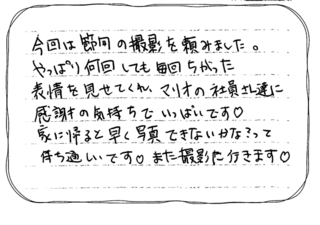 今回は節句の撮影を頼みました。
やっぱり何回しても毎回ちがった
表情を見せてくれ、マリオの社員さん達に
感謝の気持ちでいっぱいです♡
家に帰ると早く写真できないかな?って
待ち遠しいです♡また撮影に行きます♡